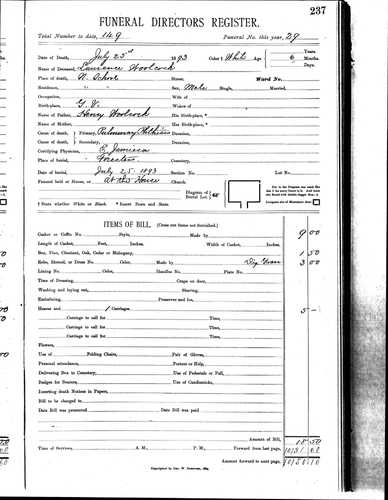 237
FUNERAL DIRECTORS REGISTER.
Total Number to date, 149 Funeral No. this year, 29
Date of Death, July 23d 1893 Color † White Age 6 Years Months Days
Name of Deceased, Laurance Woolcock
Place of death, N. Street, Ward No.
Residence, Sex, Male Single, Married,
Occupation, Wife of
Birth-place, Widow of
Name of Father, Henry Woolcock His Birth-place, *
Name of Mother, Her Birth-place, *
Cause of Death, Primary, Pulmonary Phthisis Duration,
Cause of Death, Secondary, Duration,
Certifying Physician, E Jamieson
Place of burial, Cemetery,
Date of burial, July 25. 1893 Section No. Lot No.
Funeral held at House, or at the House Church
Diagram of Burial Lot
† State whether White or Black. * Insert Town and State.
ITEMS OF BILL. (Cross out items not furnished.)
Casket or Coffin No. Style, Made by 9 00
Length of Casket, Feet, Inches. Width of Casket, Inches.
Box, Pine, Chestnut, Oak, Cedar or Mahogany, 1 50
Robe, Shroud, or Dress No. Color, Made by Dig Grave 3 00
Lining No. Color, Handles No. Plate No.
Time of Dressing, Crape on door,
Washing and laying out, Shaving,
Embalming, Preserver and Ice,
Hearse and 1 Carriages 5 -
Carriage to call for Time,
Carriage to call for Time,
Carriage to call for Time,
Flowers,
Use of Folding Chairs, Pair of Gloves,
Personal attendance, Porters or Help,
Delivering Box to Cemetery, Use of Pedestals or Pall,
Badges for Bearers, Use of Candlesticks,
Inserting death Notices in Papers,
Bill to be charged to
Date Bill was presented Date Bill was paid
Amount of Bill, 18 50
Time of Services, A. M., P. M., Forward from last page,
Amount forward to next page,